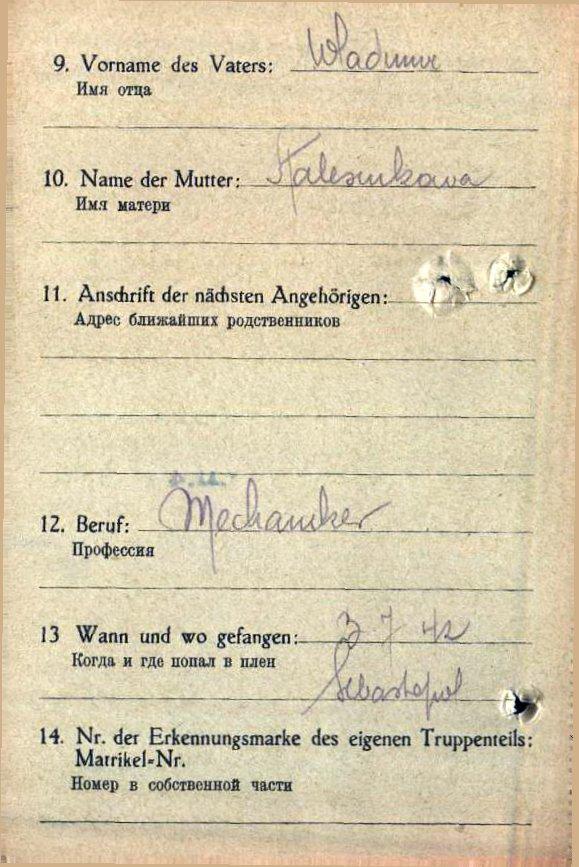 9. Vorname des Vaters: Wladimir
Имя отца
10. Name der Mutter: Kalesnikowa
Имя матери
11. Anschrift der nächsten Angehörigen:
Адрес ближайших родственников
12. Beruf: Mechaniker
Профессия
13 Wann und wo gefangen: 3 7 42
Когда и где попал в плен
Sebastopol
14. Nr. der Erkennungsmarke des eigenen Truppenteils:
Matrikel-Nr.
Номер в собственной части